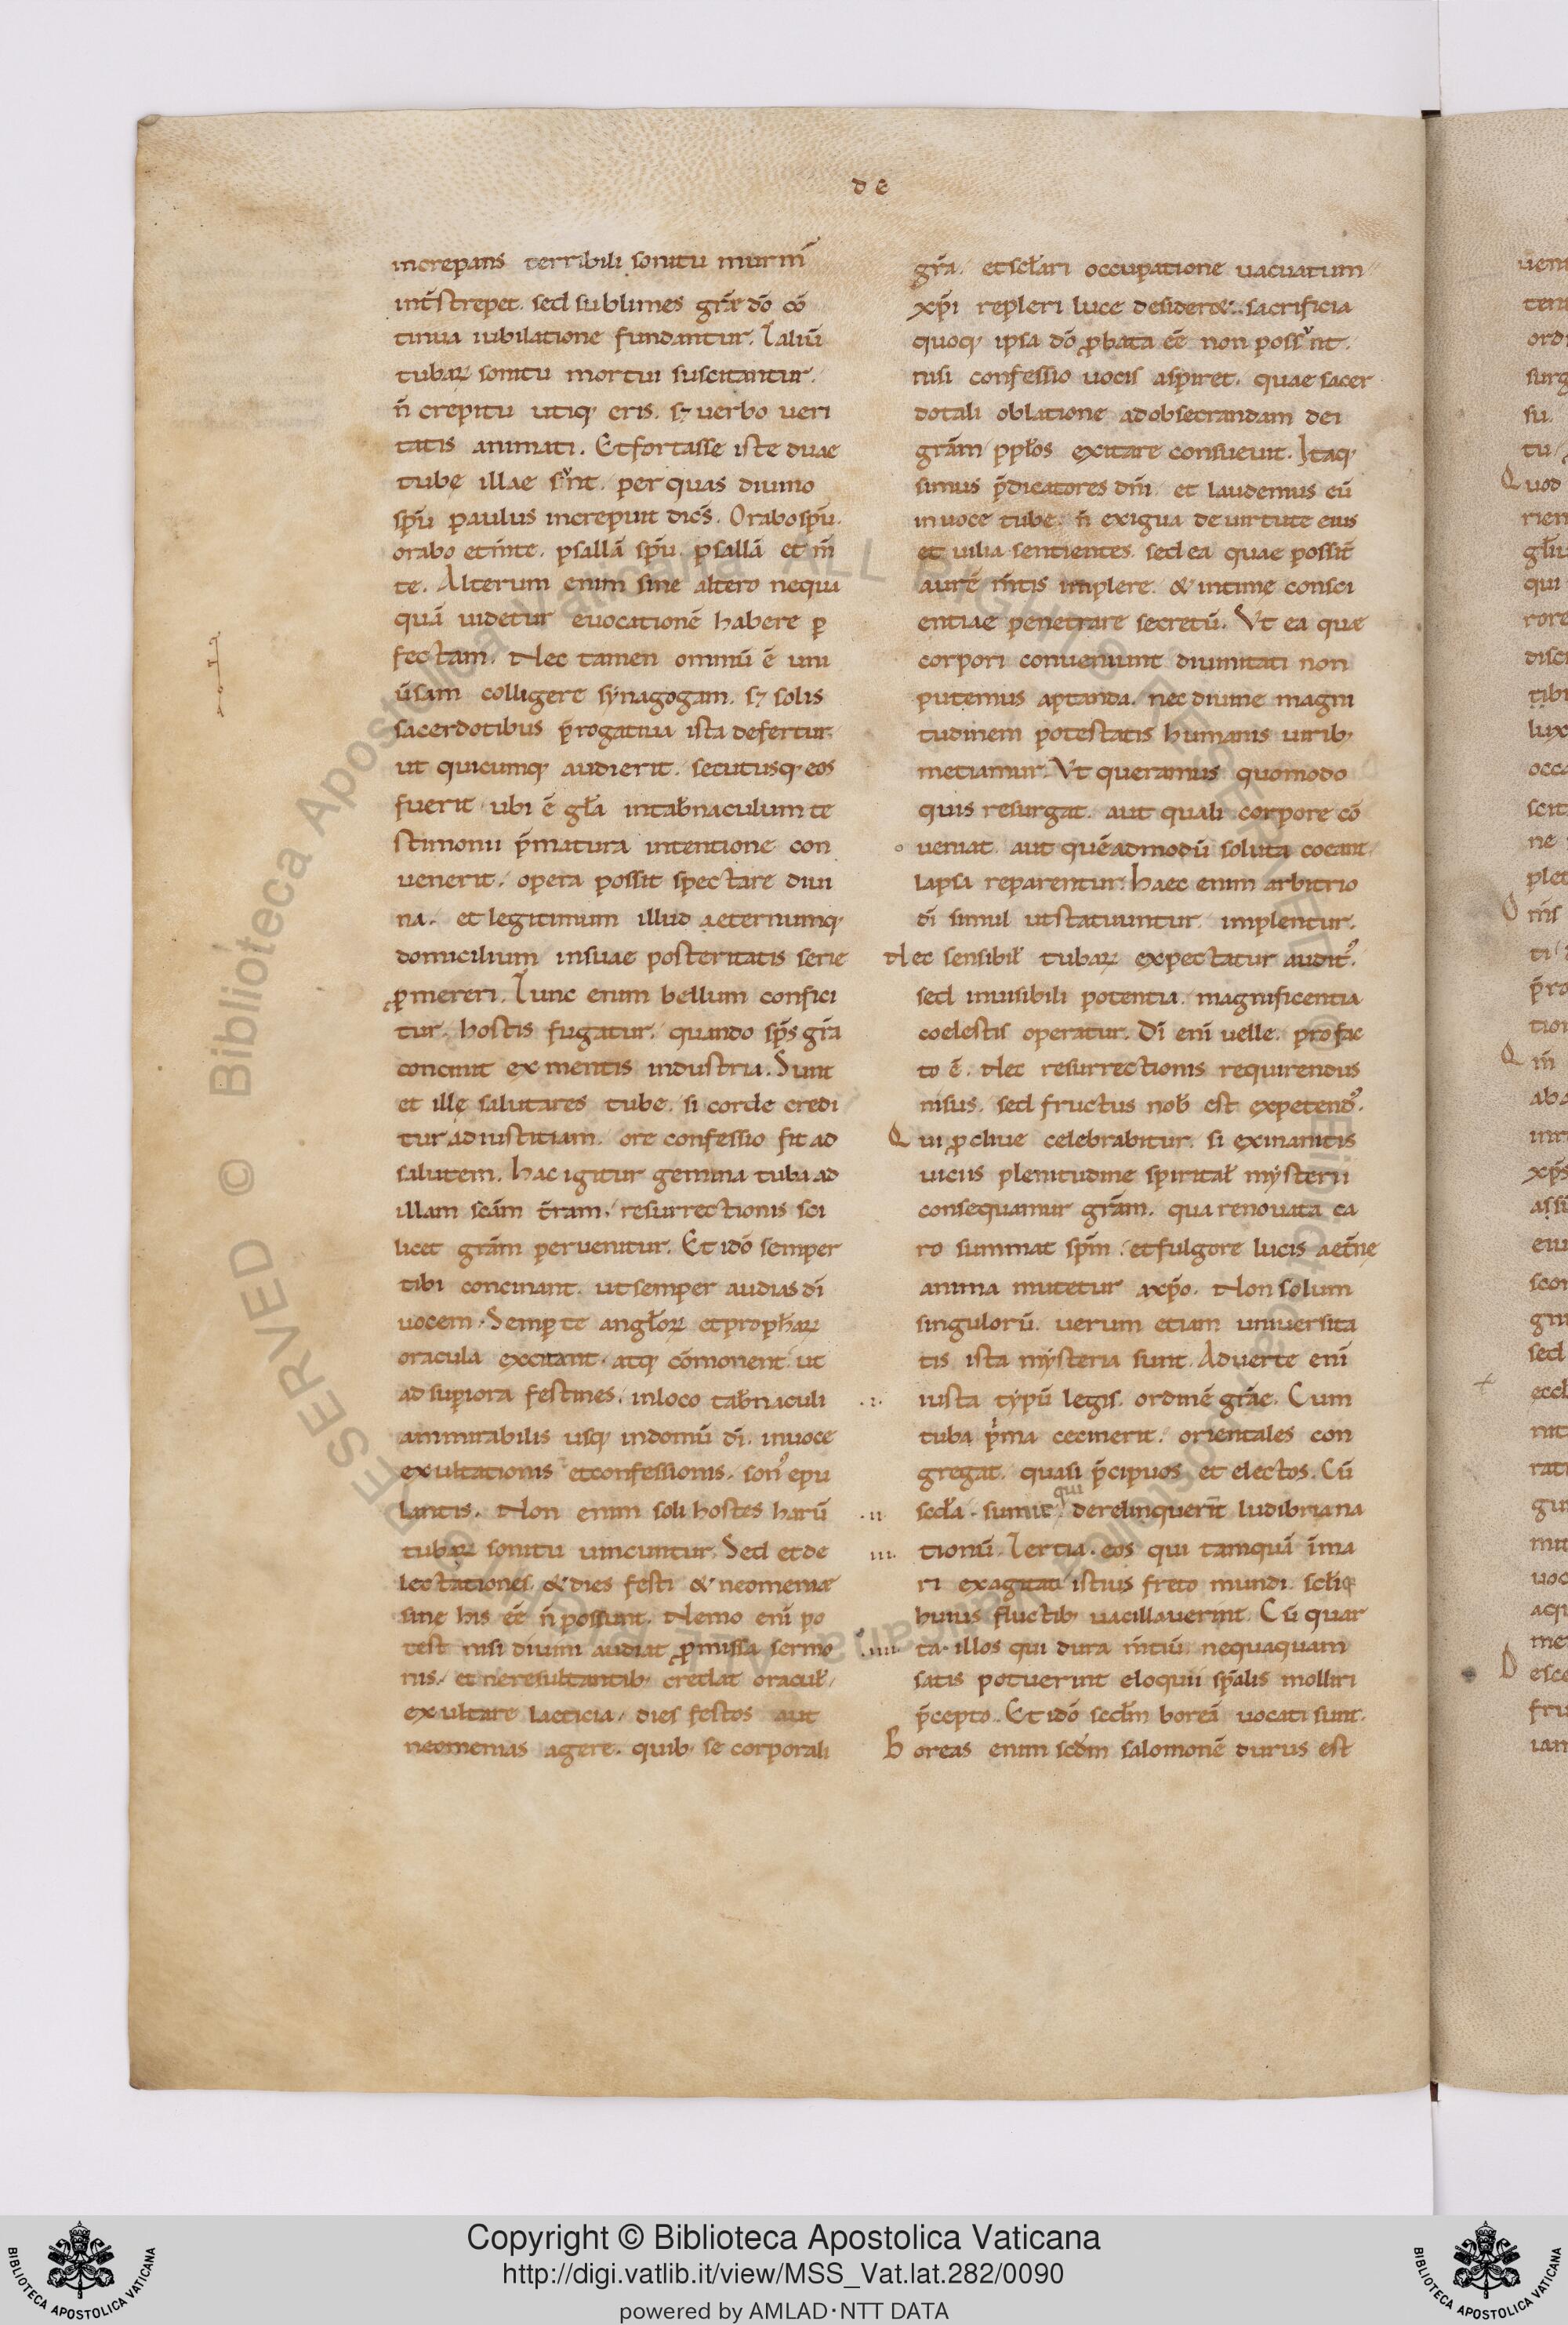 de
increpans terribili sonitu murm̄
int̄strepet. sed sublimes gr̄æ dō cō
tinua iubilatione fundantur. Taliū
tubaꝝ sonitu mortui suscitantur.
n̄ crepitu utiq; eris. sꝫ verbo veri
tatis animati. Et fortasse iste duae
tubę illae sunt. per quas diuino
sp̄u paulus increpuit dicēs. Orabo sp̄u.
orabo et m̄te. psallā sp̄u. psallā et m̄
te. Alterum enim sine altero nequa
quā uidetur euocationē habere ꝑ
fectam. Nec tamen omniū ē uni
ūsam colligere synagogam. sꝫ solis
sacerdotibus p̄rogatiua ista defertur.
ut quicumq; audierit. secutusq; eos
fuerit ubi ē gl̄a in tab̄naculum te
stimonii p̄matura intentione con
uenerit. opera possit spectare diui
na. et legitimum illud aeternumq;
domicilium in suae posteritatis serie
ꝓmereri. Tunc enim bellum confici
tur. hostis fugatur. quando sp̄s gr̄a
concinit ex mentis industria. Sunt
et illę salutares tubę. si corde credi
tur ad iustitiam. ore confessio fit ad
salutem. Hac igitur gemina tuba ad
illam scām t̄ram. resurrectionis sci
licet grām peruenitur. Et idō semper
tibi concinant. ut semper audias dī
uocem. Semꝑ te angl̄oꝝ et proph̄aꝝ
oracula excitant. atq; cōmonent ut
ad suꝑiora festines. in loco tab̄naculi
ammirabilis usq; in domū dī. in uoce
exultationis et confessionis. son᾽ epu
lantis. Non enim soli hostes harū
tubaꝝ sonitu uincuntur. Sed et de
lectationes. & dies festi & neomeniæ
sine his ēē n̄ possunt. Nemo enī po
test nisi diuini audiat ꝓmissa sermo
nis. et ne resultantib; credat oracul̄.
exultare laeticia. dies festos aut
neomenias agere. quib; se corporali
gr̄a. et scl̄ari occupatione uacuatum
xp̄i repleri luce desideret. sacrificia
quoq; ipsa dō ꝓbata ēē non possunt.
nisi confessio uocis aspiret. quae sacer
dotali oblatione ad obsecrandam dei
grām ppl̄os excitare consueuit. Itaq;
simus p̄dicatores dn̄i. et laudemus eū
in uoce tubę. n̄ exigua de uirtute eius
et uilia sentientes. sed ea quae possīt
aurē m̄tis implere. & intime consci
entiae penetrare secretū. Vt ea quæ
corpori conueniunt diuinitati non
putemus aptanda. nec diuine magni
tudinem potestatis humanis uirib;
metiamur. Vt queramus quomodo
quis resurgat. aut quali corpore cō
ueniat. aut quēadmodū soluta coeant.
lapsa reparentur. Haec enim arbitrio
dī simul ut statuuntur implentur.
Nec sensibil̄ tubaꝝ expectatur audit᾽.
sed inuisibili potentia. magnificentia
coelestis operatur. Dī enī uelle. pro fac
to ē. Nec resurrectionis requirendus
nisus. sed fructus nob̄ est expetend᾽.
Qui ꝓcliue celebrabitur. si exinanitis
uiciis plenitudine spirital̄ mysterii
consequamur grām. qua renouata ca
ro summat sp̄m. et fulgore lucis aet̄ne
anima mutetur a xp̄o. Non solum
singulorū. uerum etiam uniuersita
tis ista mysteria sunt. Aduerte enī
.i. iusta typū legis. ordinē grāe. Cum
tuba p̄ma cecinerit. orientales con
gregat. quasi p̄cipuos et electos. Cū
qui
.ii. secl̄a. sumit. derelinquerīt ludibria na
.iii. tionū. Tertia. eos qui tamquā īma
ri exagitati istius freto mundi. scl̄iq;
huius fluctib; uacillauerint. Cū quar
.iiii. ta. illos qui dura m̄tiū. nequaquam
satis potuerint eloquii sp̄alis molliri
p̄cepto. Et idō secdm̄ boreā uocati sunt.
Boreas enim secdm̄ salomonē durus est
ord
surg
su.
tu
Quod
qui
rore
tibi
lux
ne
ti
sed
Copyright © Biblioteca Apostolica Vaticana
http://digi.vatlib.it/view/MSS_Vat.lat.282/0090
powered by AMLAD·NTT DATA
BIBLIOTECA APOSTOLICA VATICANA
BIBLIOTECA APOSTOLICA VATICANA